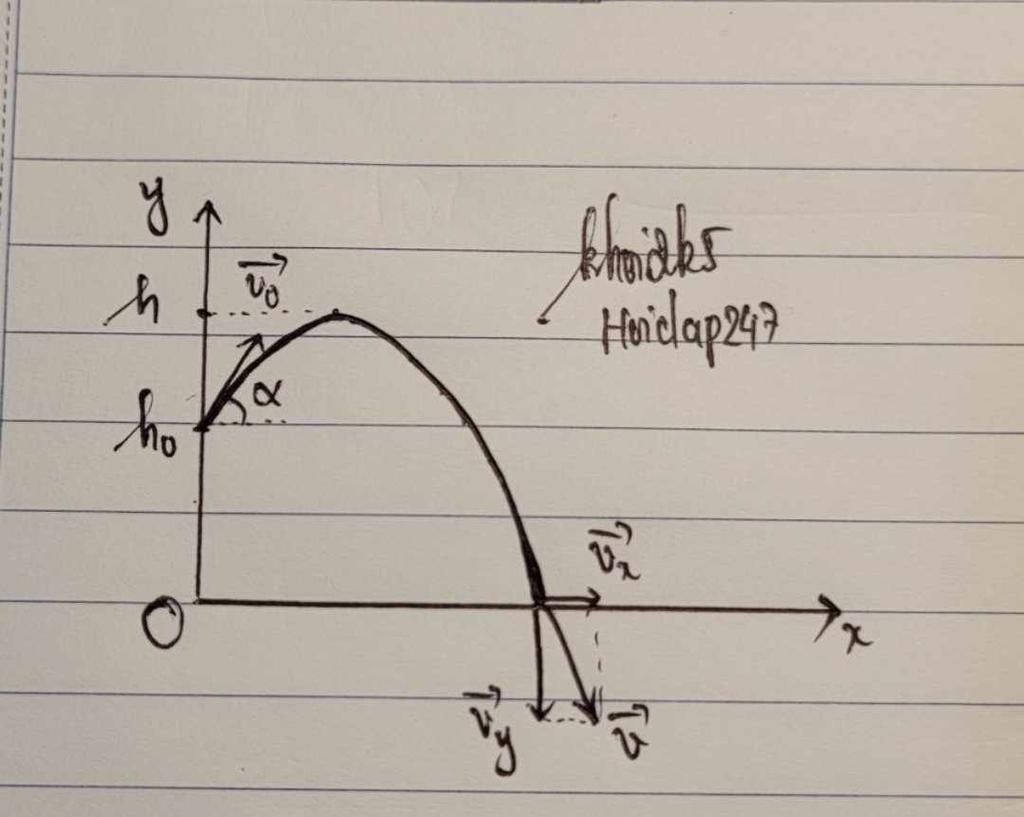 y
h
v₀
α
h₀
khoidk5
Hoidap247
vₓ
O
x
v_y
v